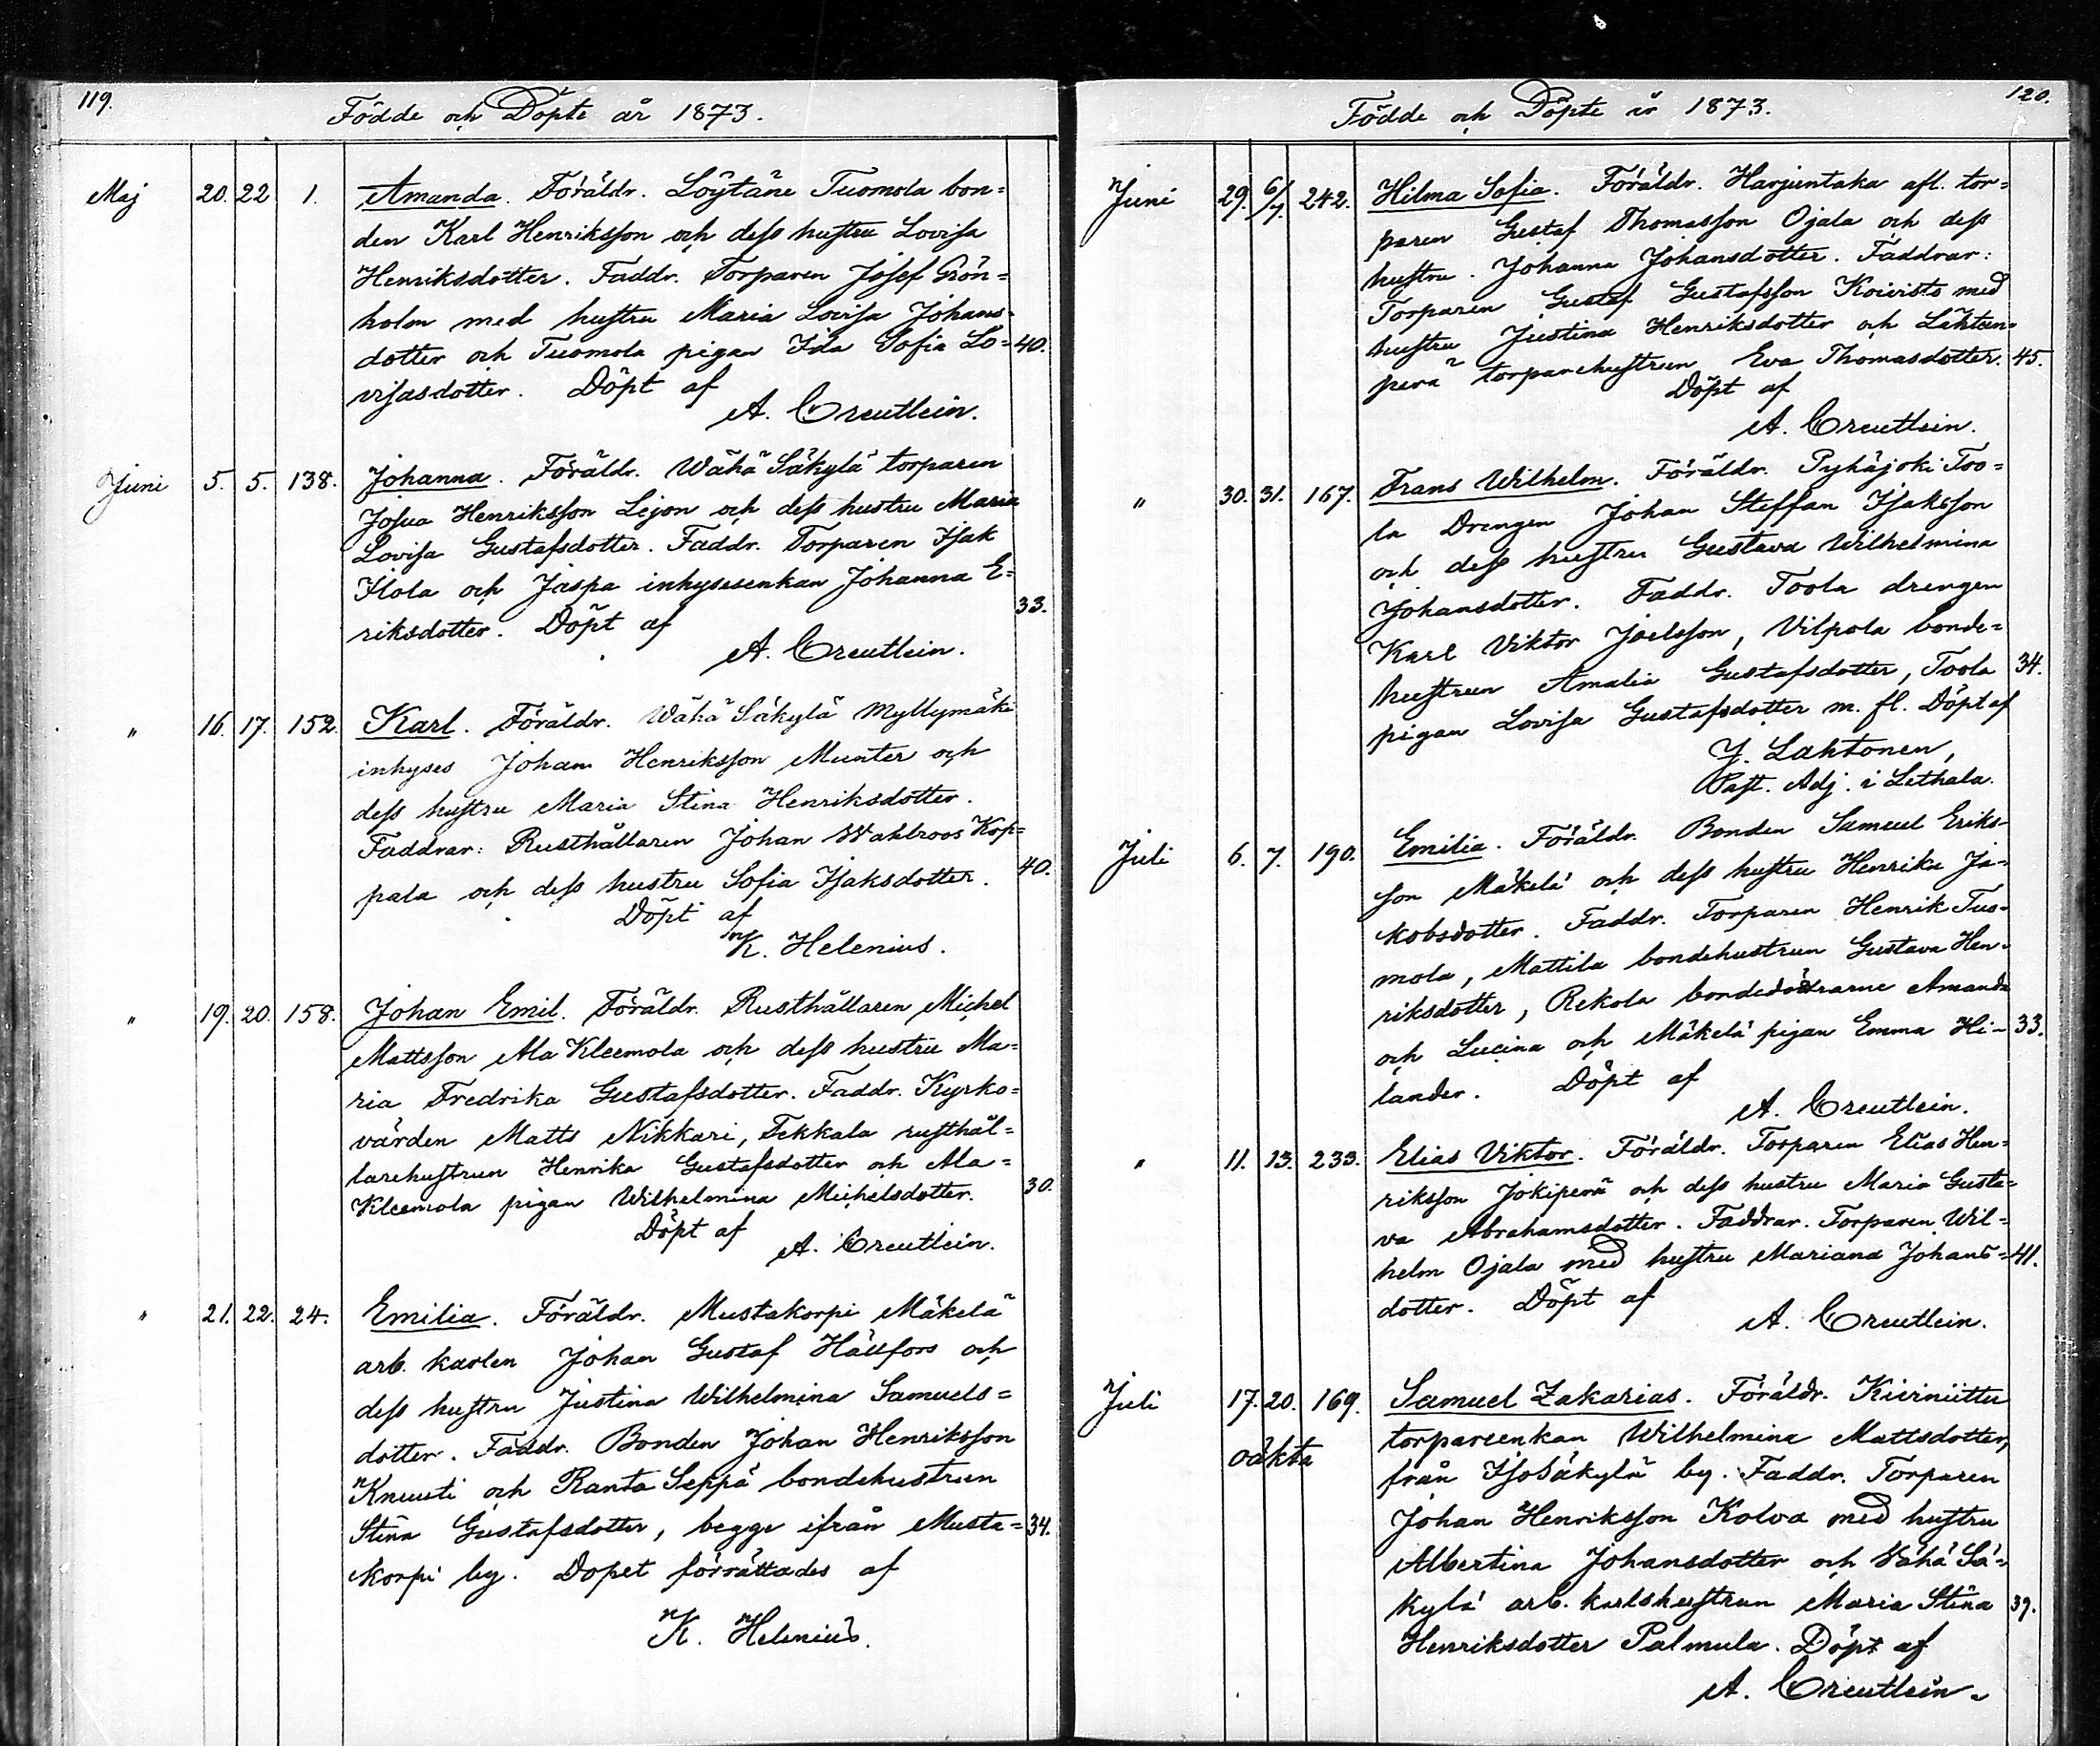 119.
Födde och Döpte år 1873.
Maj 20. 22 1. Amanda. Föräldr. Löytäne Tuomola bon=
den Karl Henriksson och dess hustru Lovisa
Henriksdotter. Faddr. Torparen Josef Grön=
holm med hustru Maria Lovisa Johans=
dotter och Tuomola pigan Ida Sofia Lo= 40.
visasdotter. Döpt af
A. Creutlein.
Juni 5. 5. 138. Johanna. Föräldr. Wähä Säkylä torparen
Josua Henriksson Lejon och dess hustru Maria
Lovisa Gustafsdotter. Faddr. Torparen Isak
Ilola och Jaspa inhysesenkan Johanna E=
riksdotter. Döpt af 33.
A. Creutlein.
" 16. 17. 152. Karl. Föräldr. Wähä Säkylä Myllymäki
inhyses Johan Henriksson Munter och
dess hustru Maria Stina Henriksdotter.
Faddrar: Rusthållaren Johan Wahlroos Kop=
pala och dess hustru Sofia Isaksdotter. 40.
Döpt af
K. Helenius.
" 19. 20. 158. Johan Emil. Föräldr. Rusthållaren Michel
Mattsson Ala Kleemola och dess hustru Ma=
ria Fredrika Gustafsdotter. Faddr. Kyrko=
värden Matts Nikkari, Tekkala rusthål=
larehustrun Henrika Gustafsdotter och Ala=
Kleemola pigan Wilhelmina Michelsdotter. 30.
Döpt af
A. Creutlein.
" 21. 22. 24. Emilia. Föräldr. Mustakorpi Mäkelä
arb. karlen Johan Gustaf Hällfors och
dess hustru Justina Wilhelmina Samuels=
dotter. Faddr. Bonden Johan Henriksson
Knuuti och Ranta Seppä bondehustrun
Stina Gustafsdotter, begge ifrån Musta= 34.
korpi by. Dopet förrättades af
K. Helenius.
120.
Födde och Döpte år 1873.
Juni 29. 6/7. 242. Hilma Sofia. Föräldr. Harjuntaka afl. tor=
paren Gustaf Thomasson Ojala och dess
hustru Johanna Johansdotter. Faddrar:
Torparen Gustaf Gustafsson Koivisto med
hustru Justina Henriksdotter och Lähteen=
perä torparehustrun Eva Thomasdotter. 45.
Döpt af
A. Creutlein.
" 30. 31. 167. Frans Wilhelm. Föräldr. Pyhäjoki Too=
la Drengen Johan Steffan Isaksson
och dess hustru Gustava Wilhelmina
Johansdotter. Faddr. Toola drengen
Karl Viktor Joelsson, Vilpola bonde=
hustrun Amalia Gustafsdotter, Toola 34.
pigan Lovisa Gustafsdotter m. fl. Döpt af
J. Lahtonen,
Past. Adj. i Lethala.
Juli 6. 7. 190. Emilia. Föräldr. Bonden Samuel Eriks=
son Mäkelä och dess hustru Henrika Ja=
kobsdotter. Faddr. Torparen Henrik Tuo=
mola, Mattila bondehustrun Gustava Hen=
riksdotter, Rekola bondedöttrarne Amanda
och Lucina och Mäkelä pigan Emma Hi= 33.
lander. Döpt af
A. Creutlein.
" 11. 13. 233. Elias Viktor. Föräldr. Torparen Elias Hen=
riksson Jokiperä och dess hustru Maria Gusta=
va Abrahamsdotter. Faddrar. Torparen Wil=
helm Ojala med hustru Mariana Johans= 41.
dotter. Döpt af
A. Creutlein.
Juli 17. 20. 169. Samuel Zakarias. Föräldr. Kiviniittu
oäkta torpareenkan Wilhelmina Mattsdotter,
från IsoSäkylä by. Faddr. Torparen
Johan Henriksson Kolva med hustru
Albertina Johansdotter och Vähä Sä=
kylä arb. karlshustrun Maria Stina 39.
Henriksdotter Palmula. Döpt af
A. Creutlein.